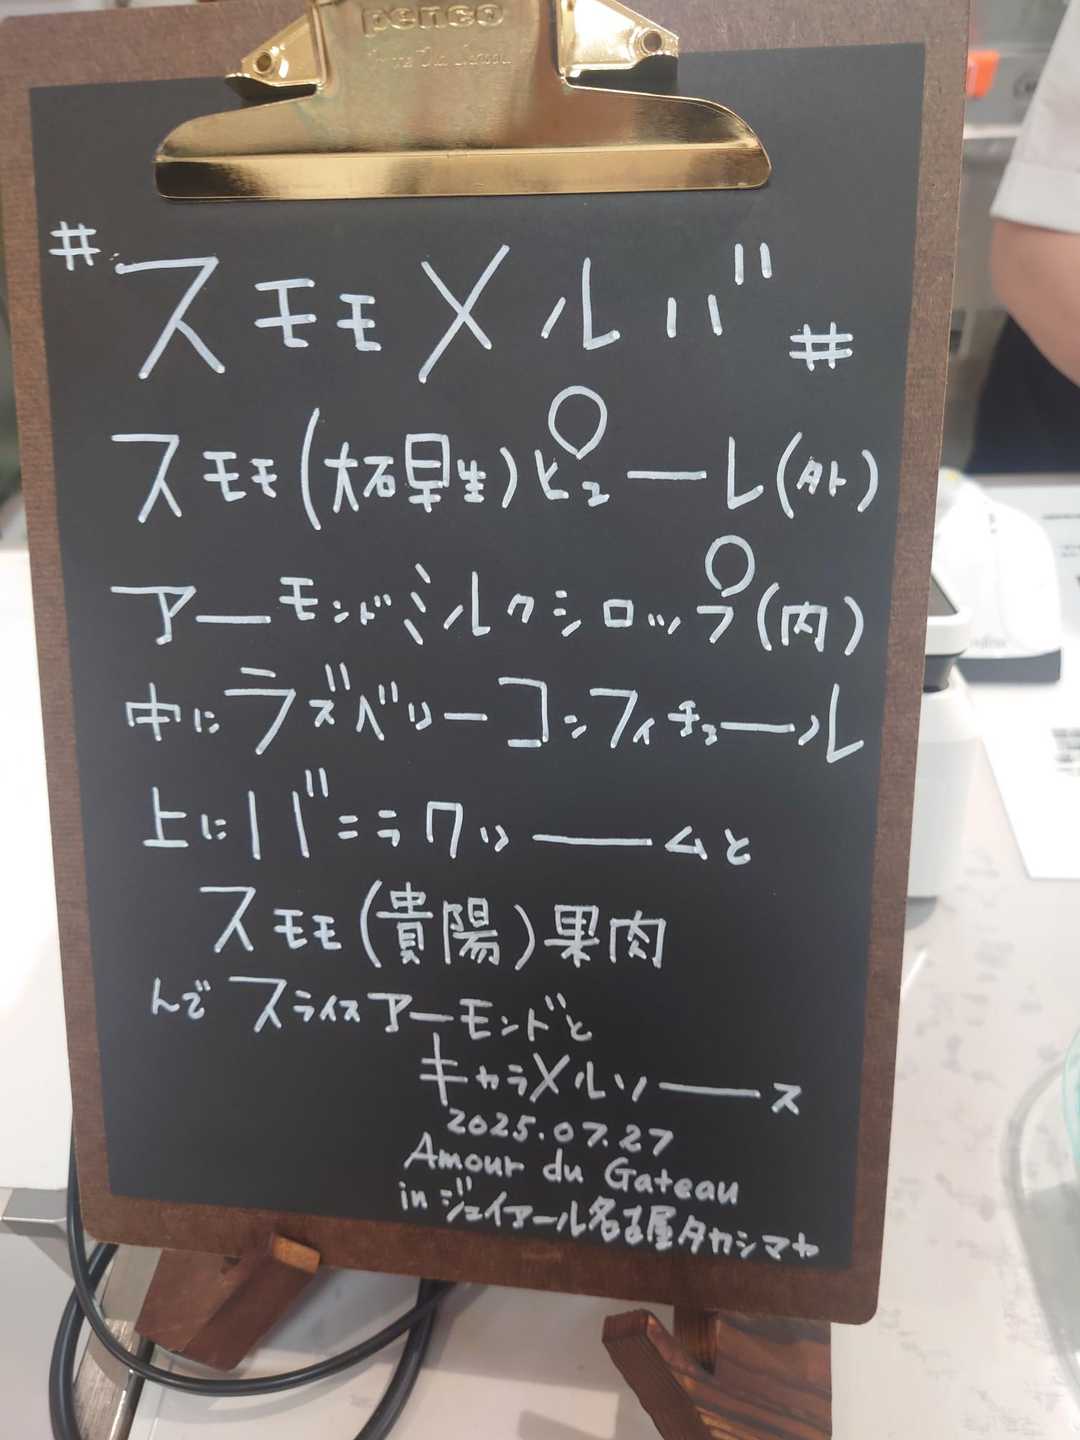 penco
# スモモメルバ #
スモモ(大石早生)ピューレ(外)
アーモンドミルクシロップ(内)
中にラズベリーコンフィチュール
上にバニラクリームと
スモモ(貴陽)果肉
んで スライスアーモンドと
キャラメルソース
2025.07.27
Amour du Gateau
in ジェイアール名古屋タカシマヤ